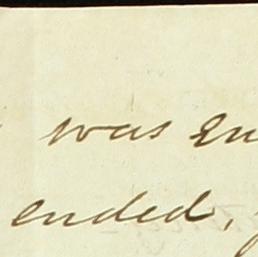 was en
ended,